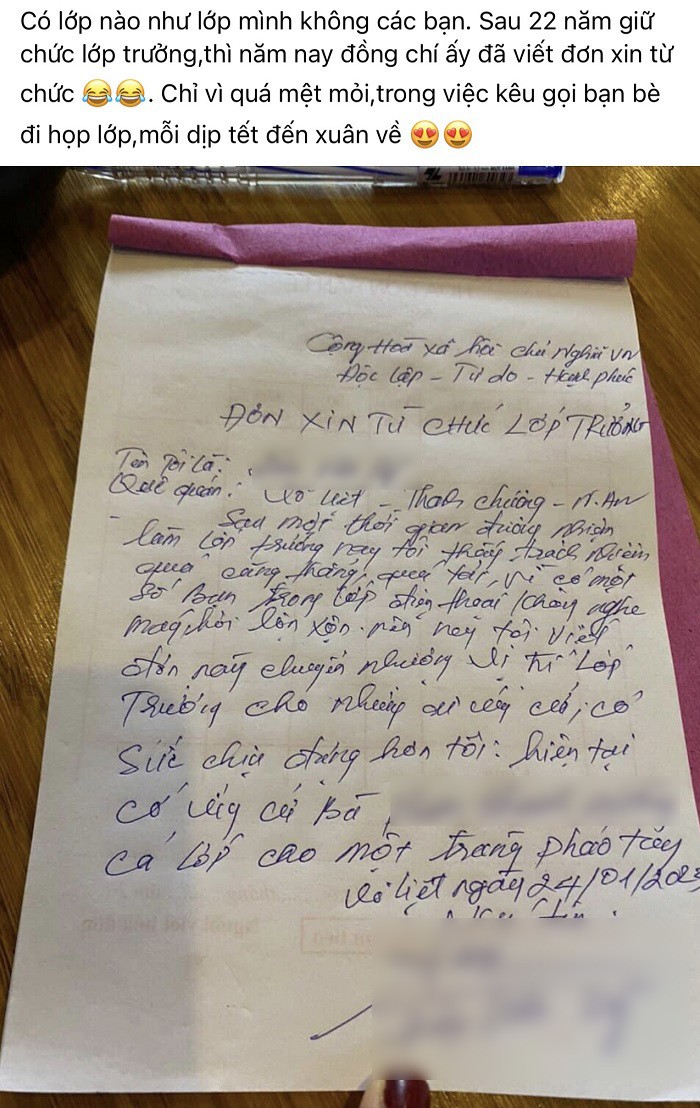 Có lớp nào như lớp mình không các bạn. Sau 22 năm giữ
chức lớp trưởng,thì năm nay đồng chí ấy đã viết đơn xin từ
chức 😂😂. Chỉ vì quá mệt mỏi,trong việc kêu gọi bạn bè
đi họp lớp,mỗi dịp tết đến xuân về 😍😍
Cộng Hoà xã hội chủ Nghĩa VN
Độc lập - Tự do - Hạnh phúc
ĐƠN XIN TỪ CHỨC LỚP TRƯỞNG
Tên tôi là:
Quê quán: Võ Liệt - Thanh chương - N. AN
- Sau một thời gian đương nhiệm
làm lớp trưởng nay tôi thấy trách nhiệm
quá căng thẳng, quá tải, vì có một
số bạn trong lớp điện thoại không nghe
máy, hỏi lộn xộn. nên nay tôi viết
đơn này chuyển nhượng vị trí Lớp
Trưởng cho những ai ứng cử, có
Sức chịu đựng hơn tôi: hiện tại
có ứng cử Bà
cả Lớp cho một tràng pháo tay
Võ Liệt ngày 24/01/2023